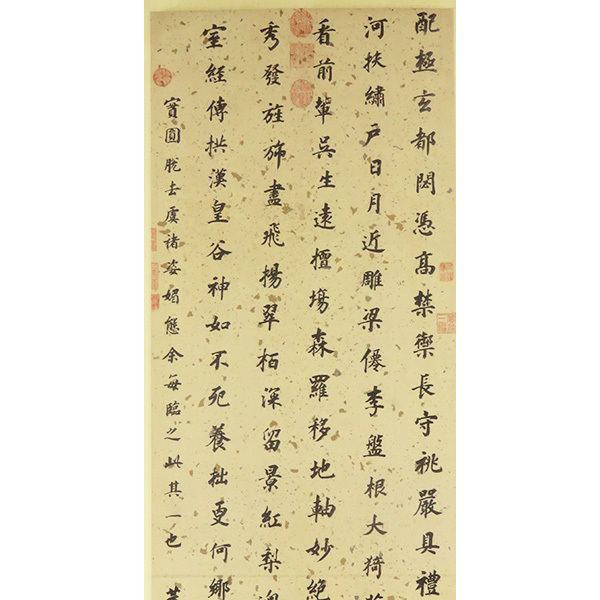 配極玄都閟憑高禁禦長守祧嚴具禮
河扶繡戶日月近雕梁僊李盤根大猗
看前輩吳生遠擅塲森羅移地軸妙絕
秀發旌旆盡飛揚翠栢深留景紅梨
室經傳拱漢皇谷神如不死養拙更何鄉
實圓脫去虞褚姿媚態余每臨之此其一也